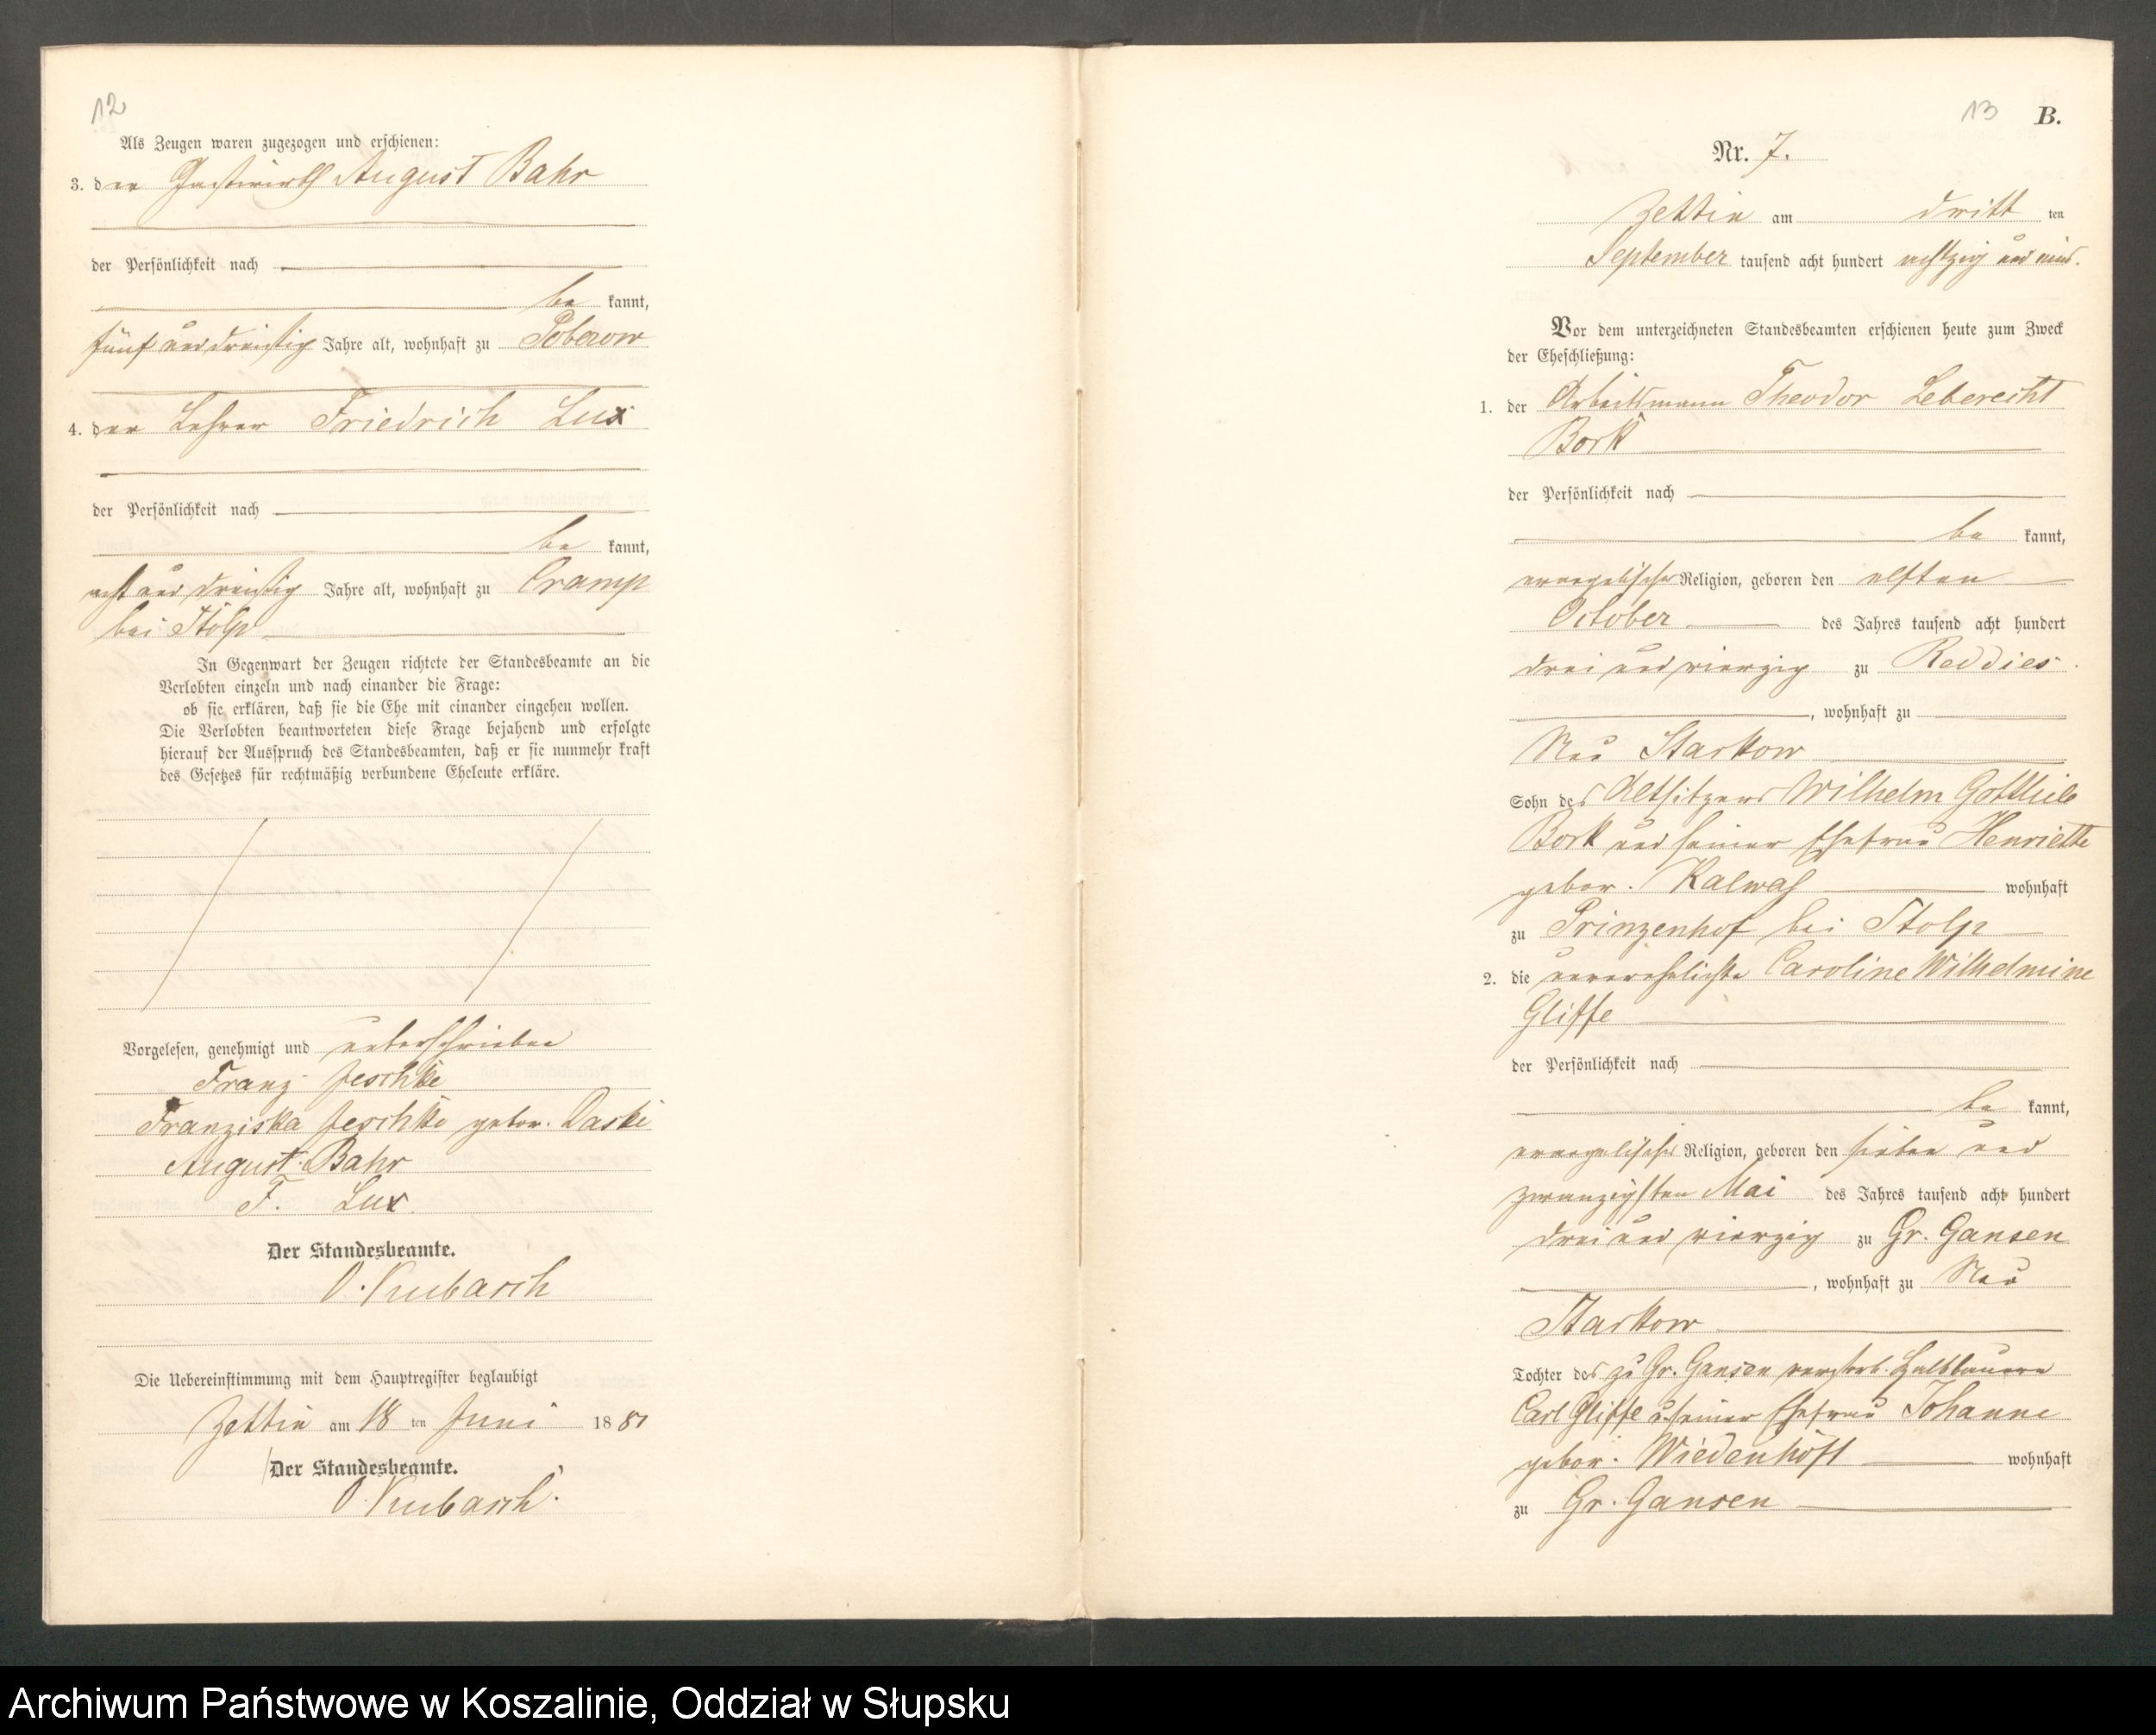 12
Als Zeugen waren zugezogen und erschienen:
3. der Gastwirth August Bahr
der Persönlichkeit nach
be kannt,
fünf und dreißig Jahre alt, wohnhaft zu Poberow
4. der Lehrer Friedrich Lux
der Persönlichkeit nach
be kannt,
acht und dreißig Jahre alt, wohnhaft zu Cramp
bei Stolp
In Gegenwart der Zeugen richtete der Standesbeamte an die
Verlobten einzeln und nach einander die Frage:
ob sie erklären, daß sie die Ehe mit einander eingehen wollen.
Die Verlobten beantworteten diese Frage bejahend und erfolgte
hierauf der Ausspruch des Standesbeamten, daß er sie nunmehr kraft
des Gesetzes für rechtmäßig verbundene Eheleute erkläre.
Vorgelesen, genehmigt und unterschrieben
Franz Jeschke
Franziska Jeschke gebor. Daske
August Bahr
F. Lux
Der Standesbeamte.
O. Kubasch
Die Uebereinstimmung mit dem Hauptregister beglaubigt
Zettin am 18 ten Juni 1881
Der Standesbeamte.
O. Kubasch.
13 B.
Nr. 7.
Zettin am dritt ten
September tausend acht hundert achtzig und eins.
Vor dem unterzeichneten Standesbeamten erschienen heute zum Zweck
der Eheschließung:
1. der Arbeitsmann Theodor Leberecht
Bork
der Persönlichkeit nach
be kannt,
evangelischer Religion, geboren den elften
October des Jahres tausend acht hundert
drei und vierzig zu Reddies
, wohnhaft zu
Neu Starkow
Sohn des Altsitzers Wilhelm Gottlieb
Bork und seiner Ehefrau Henriette
gebor. Kalwaß wohnhaft
zu Prinzenhof bei Stolp
2. die unverehelichte Caroline Wilhelmine
Gliffe
der Persönlichkeit nach
be kannt,
evangelischer Religion, geboren den sieben und
zwanzigsten Mai des Jahres tausend acht hundert
drei und vierzig zu Gr. Gansen
, wohnhaft zu Neu
Starkow
Tochter des zu Gr. Gansen verstorb. Halbbauern
Carl Gliffe u. seiner Ehefrau Johanne
gebor. Wiedenhöft wohnhaft
zu Gr. Gansen
Archiwum Państwowe w Koszalinie, Oddział w Słupsku